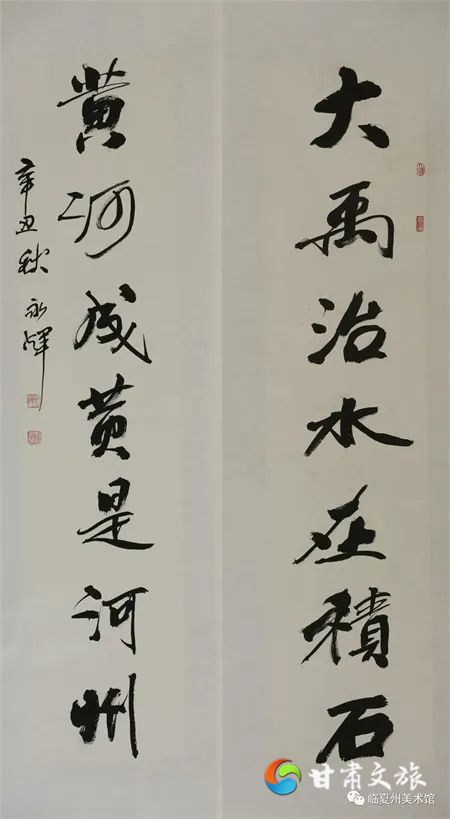 大禹治水在積石
黄河成黄是河州
辛丑秋 永輝
甘肃文旅
临夏州美术馆